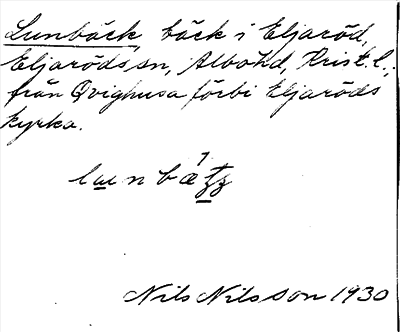 Lunbäck, bäck i Eljaröd,
Eljaröds sn, Albo hd, Krist. l.;
från Qvighusa förbi Eljaröds
kyrka.
Nils Nilsson 1930